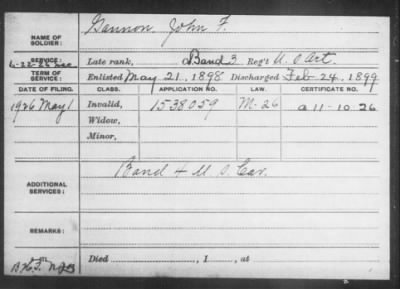 NAME OF SOLDIER: Gannon, John F.
SERVICE: Late rank, Band 3 Reg't U.S. Art.
TERM OF SERVICE: Enlisted May 21, 1898 Discharged Feb 24, 1899
DATE OF FILING. CLASS. APPLICATION NO. LAW. CERTIFICATE NO.
1926 May 1 Invalid, 1538059 M-26 a 11-10-26
Widow,
Minor,
ADDITIONAL SERVICES: Band 4 U S. Cav.
REMARKS:
Died , 1 , at